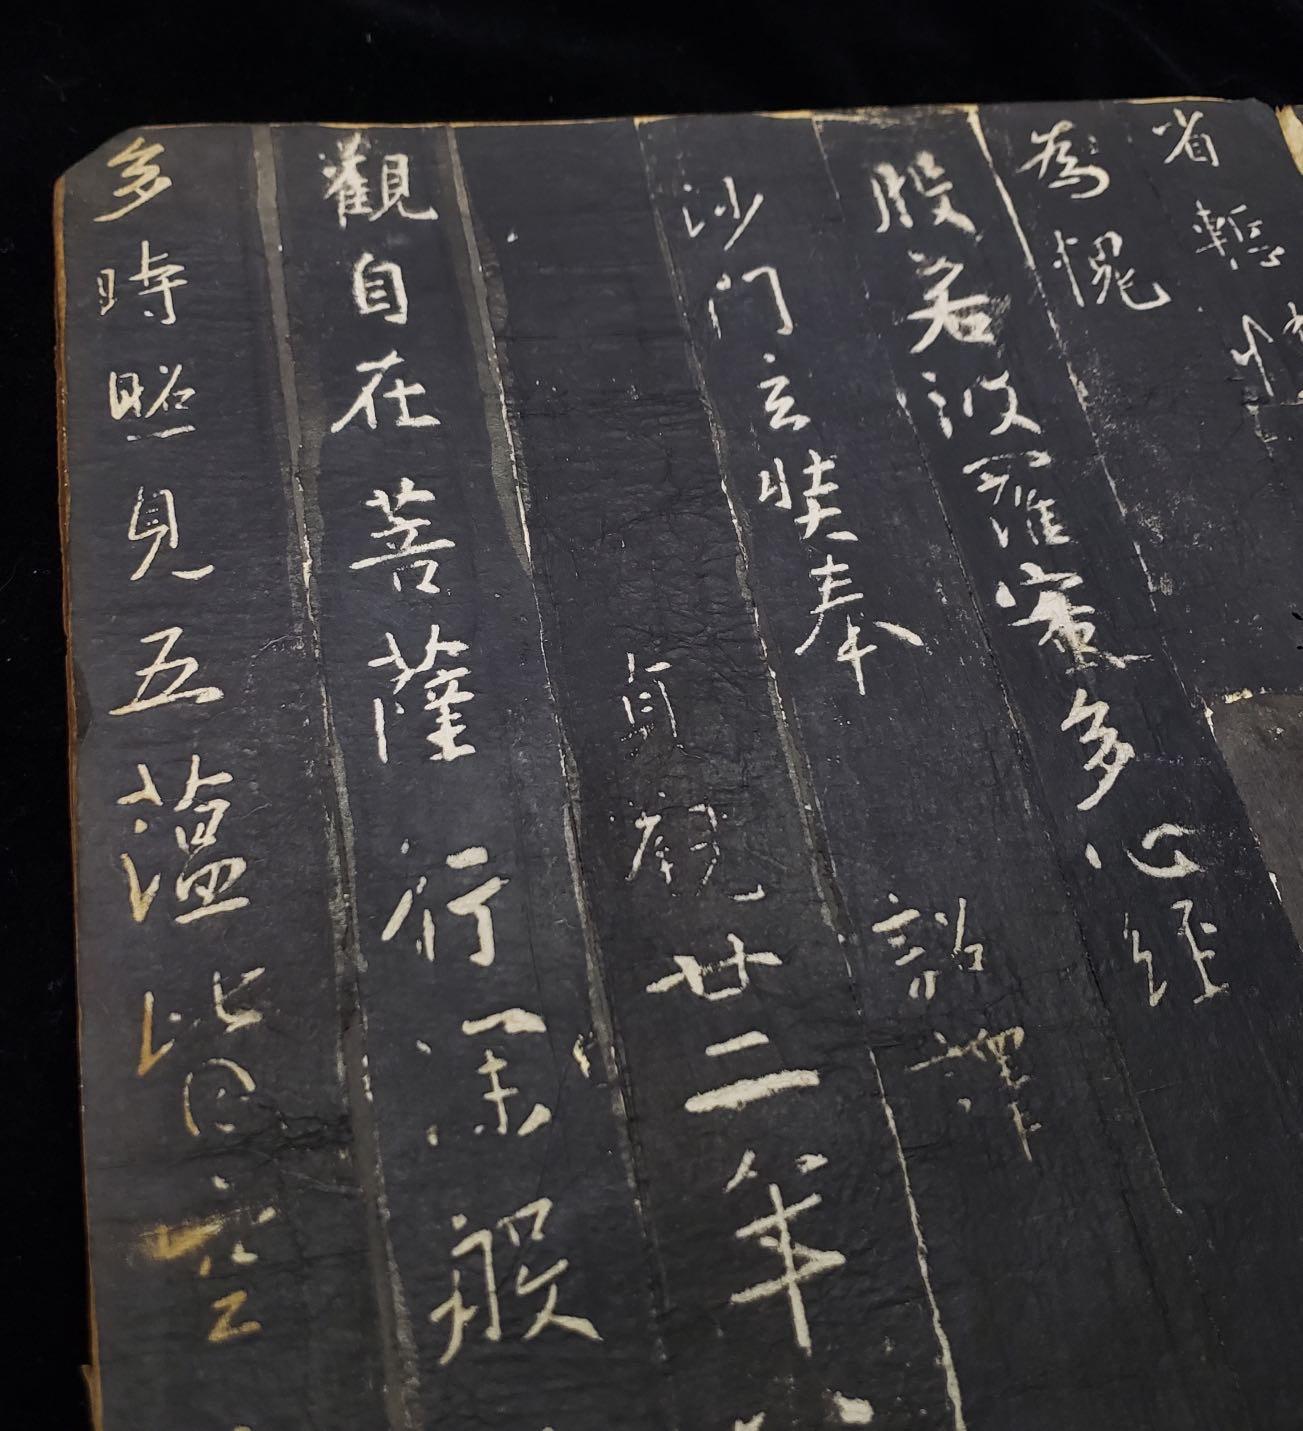 省慙
為愧
般若波羅蜜多心経
沙門玄奘奉 詔譯
貞觀廿二年
觀自在菩薩行深般
多時照見五蘊皆空